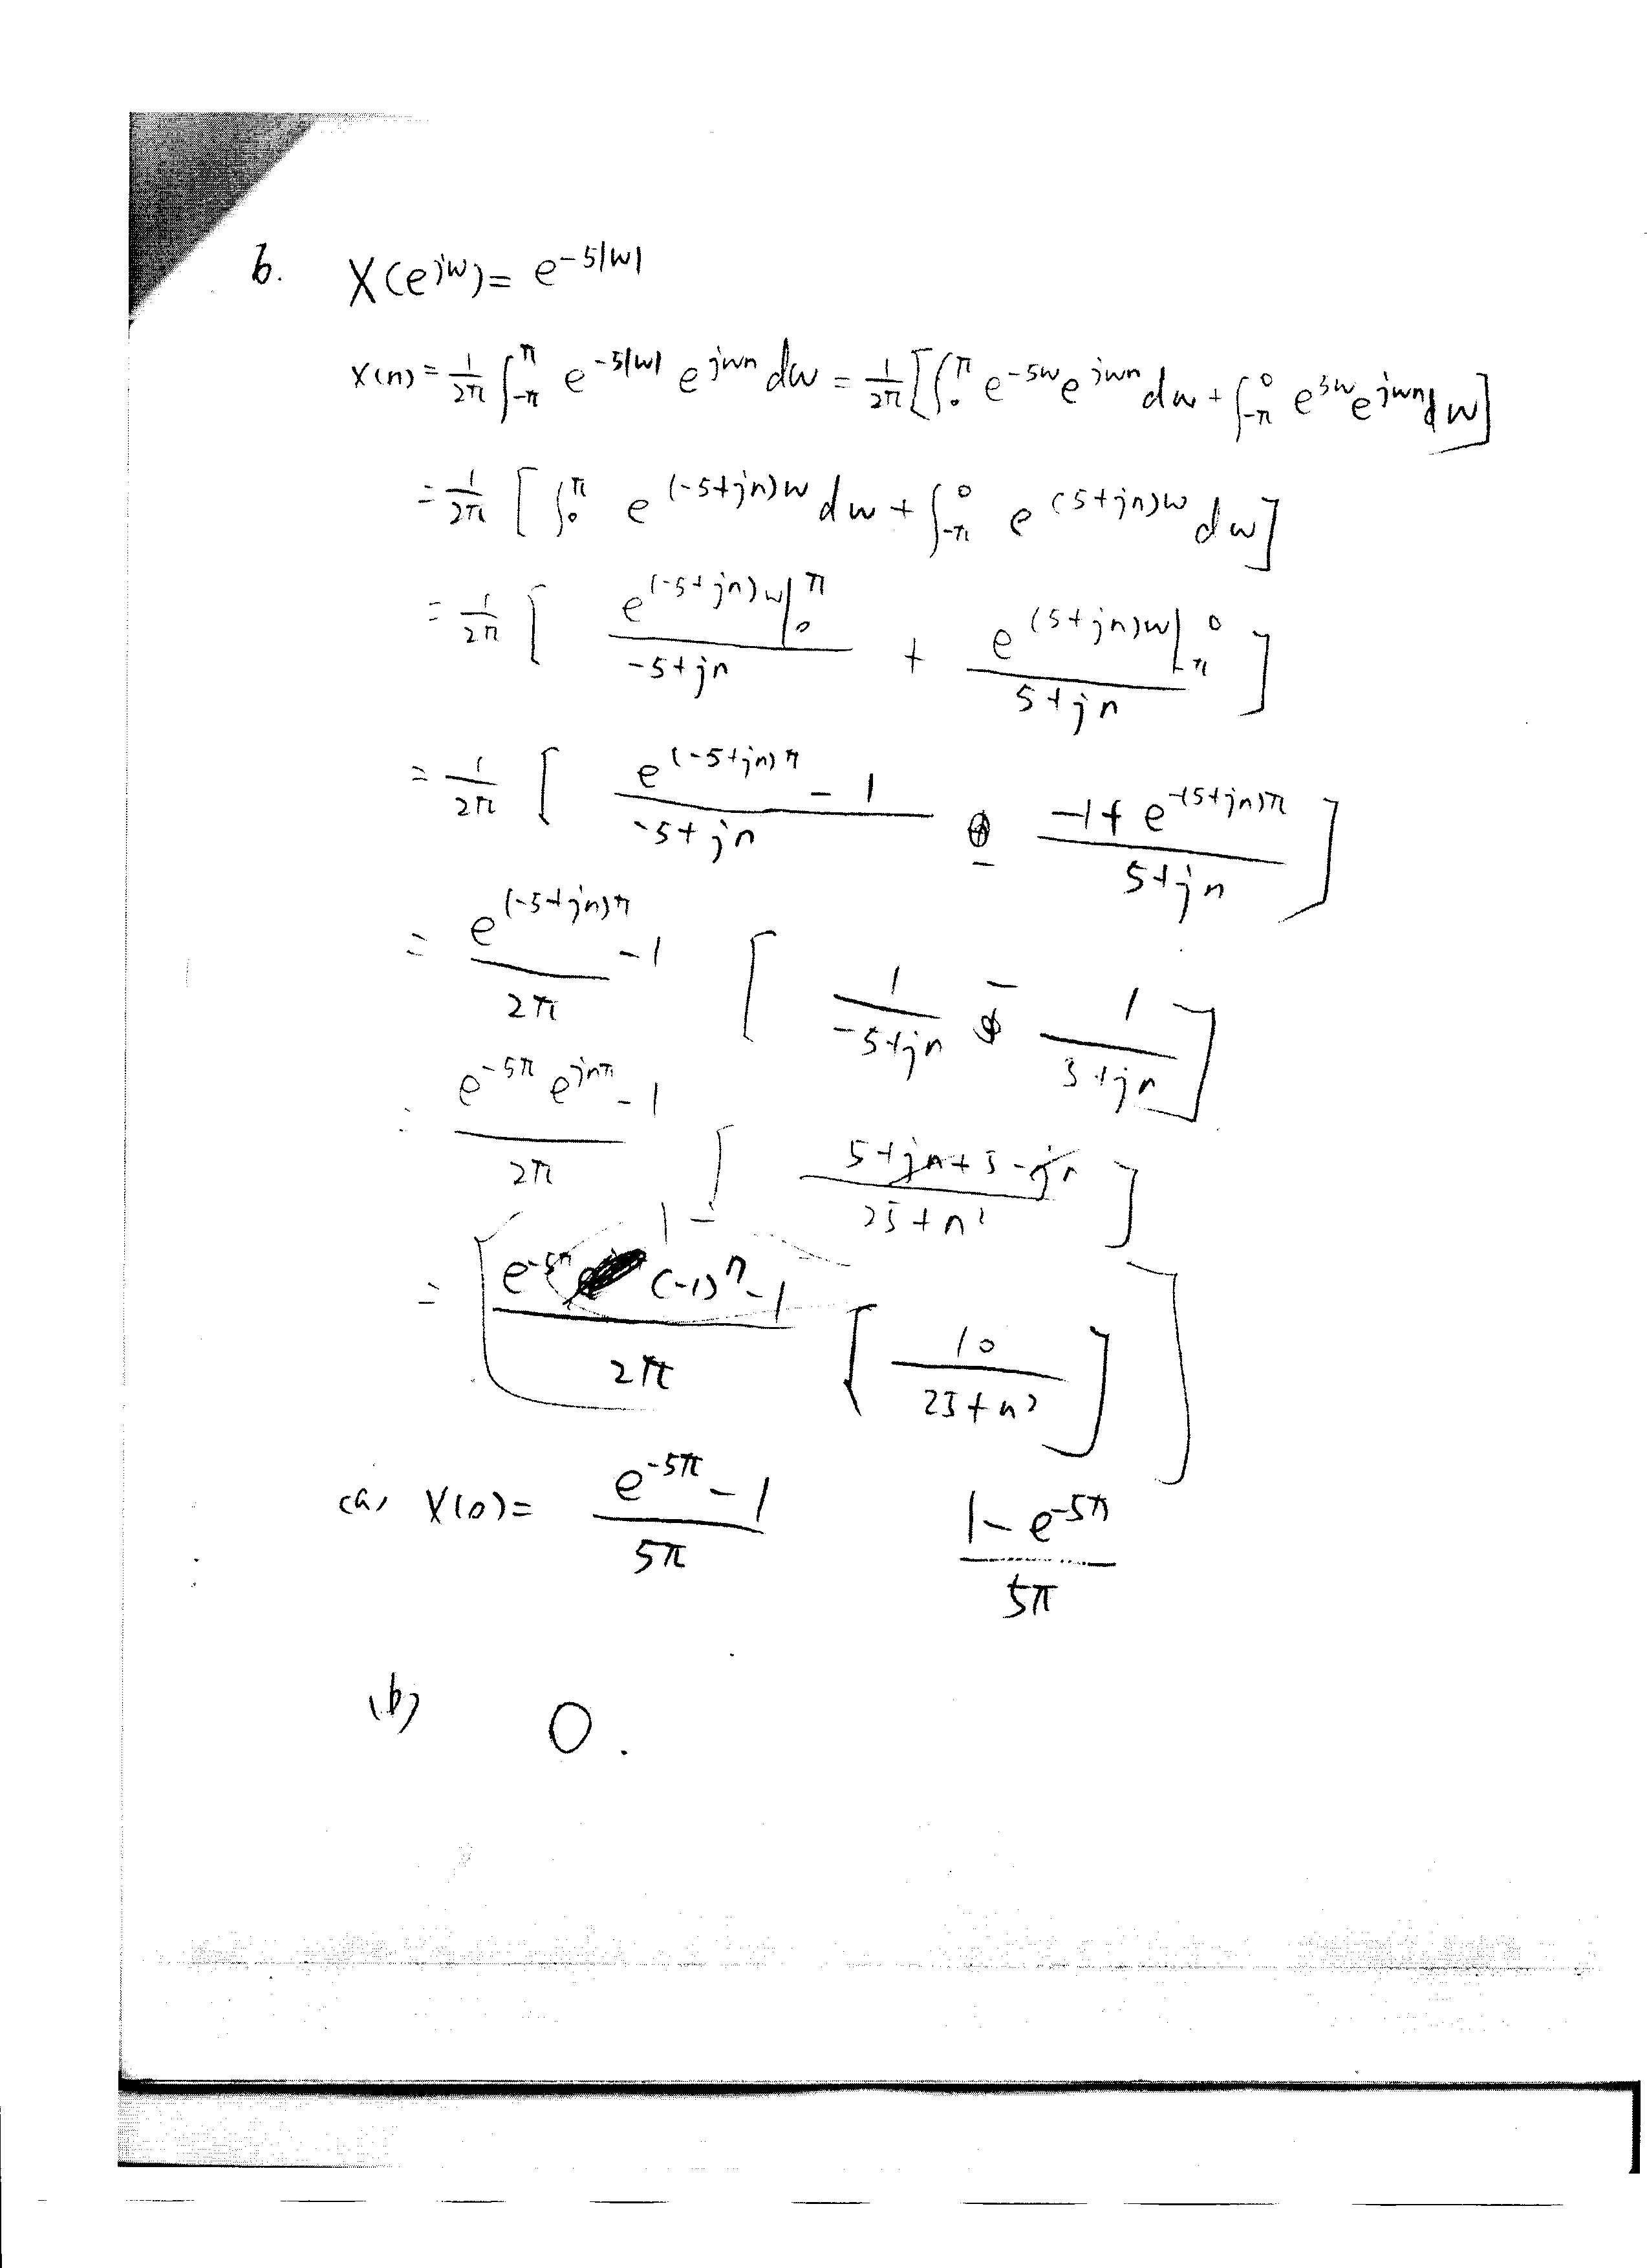 6. X(e^{jw}) = e^{-5|w|}
x(n) = \frac{1}{2π} ∫_{-π}^{π} e^{-5|w|} e^{jwn} dw = \frac{1}{2π} [∫_0^π e^{-5w} e^{jwn} dw + ∫_{-π}^0 e^{5w} e^{jwn} dw]
= \frac{1}{2π} [ ∫_0^π e^{(-5+jn)w} dw + ∫_{-π}^0 e^{(5+jn)w} dw ]
= \frac{1}{2π} [ \frac{e^{(-5+jn)w} |_0^π}{-5+jn} + \frac{e^{(5+jn)w} |_{-π}^0}{5+jn} ]
= \frac{1}{2π} [ \frac{e^{(-5+jn)π} - 1}{-5+jn} - \frac{-1 + e^{-(5+jn)π}}{5+jn} ]
= \frac{e^{(-5+jn)π} - 1}{2π} [ \frac{1}{-5+jn} - \frac{1}{5+jn} ]
= \frac{e^{-5π} e^{jnπ} - 1}{2π} [ \frac{5+jn+5-jn}{25+n^2} ]
1 -
= [ \frac{e^{-5π} (-1)^n - 1}{2π} [ \frac{10}{25+n^2} ] ]
(a) X(0) = \frac{e^{-5π} - 1}{5π} \frac{1 - e^{-5π}}{5π}
(b) 0.